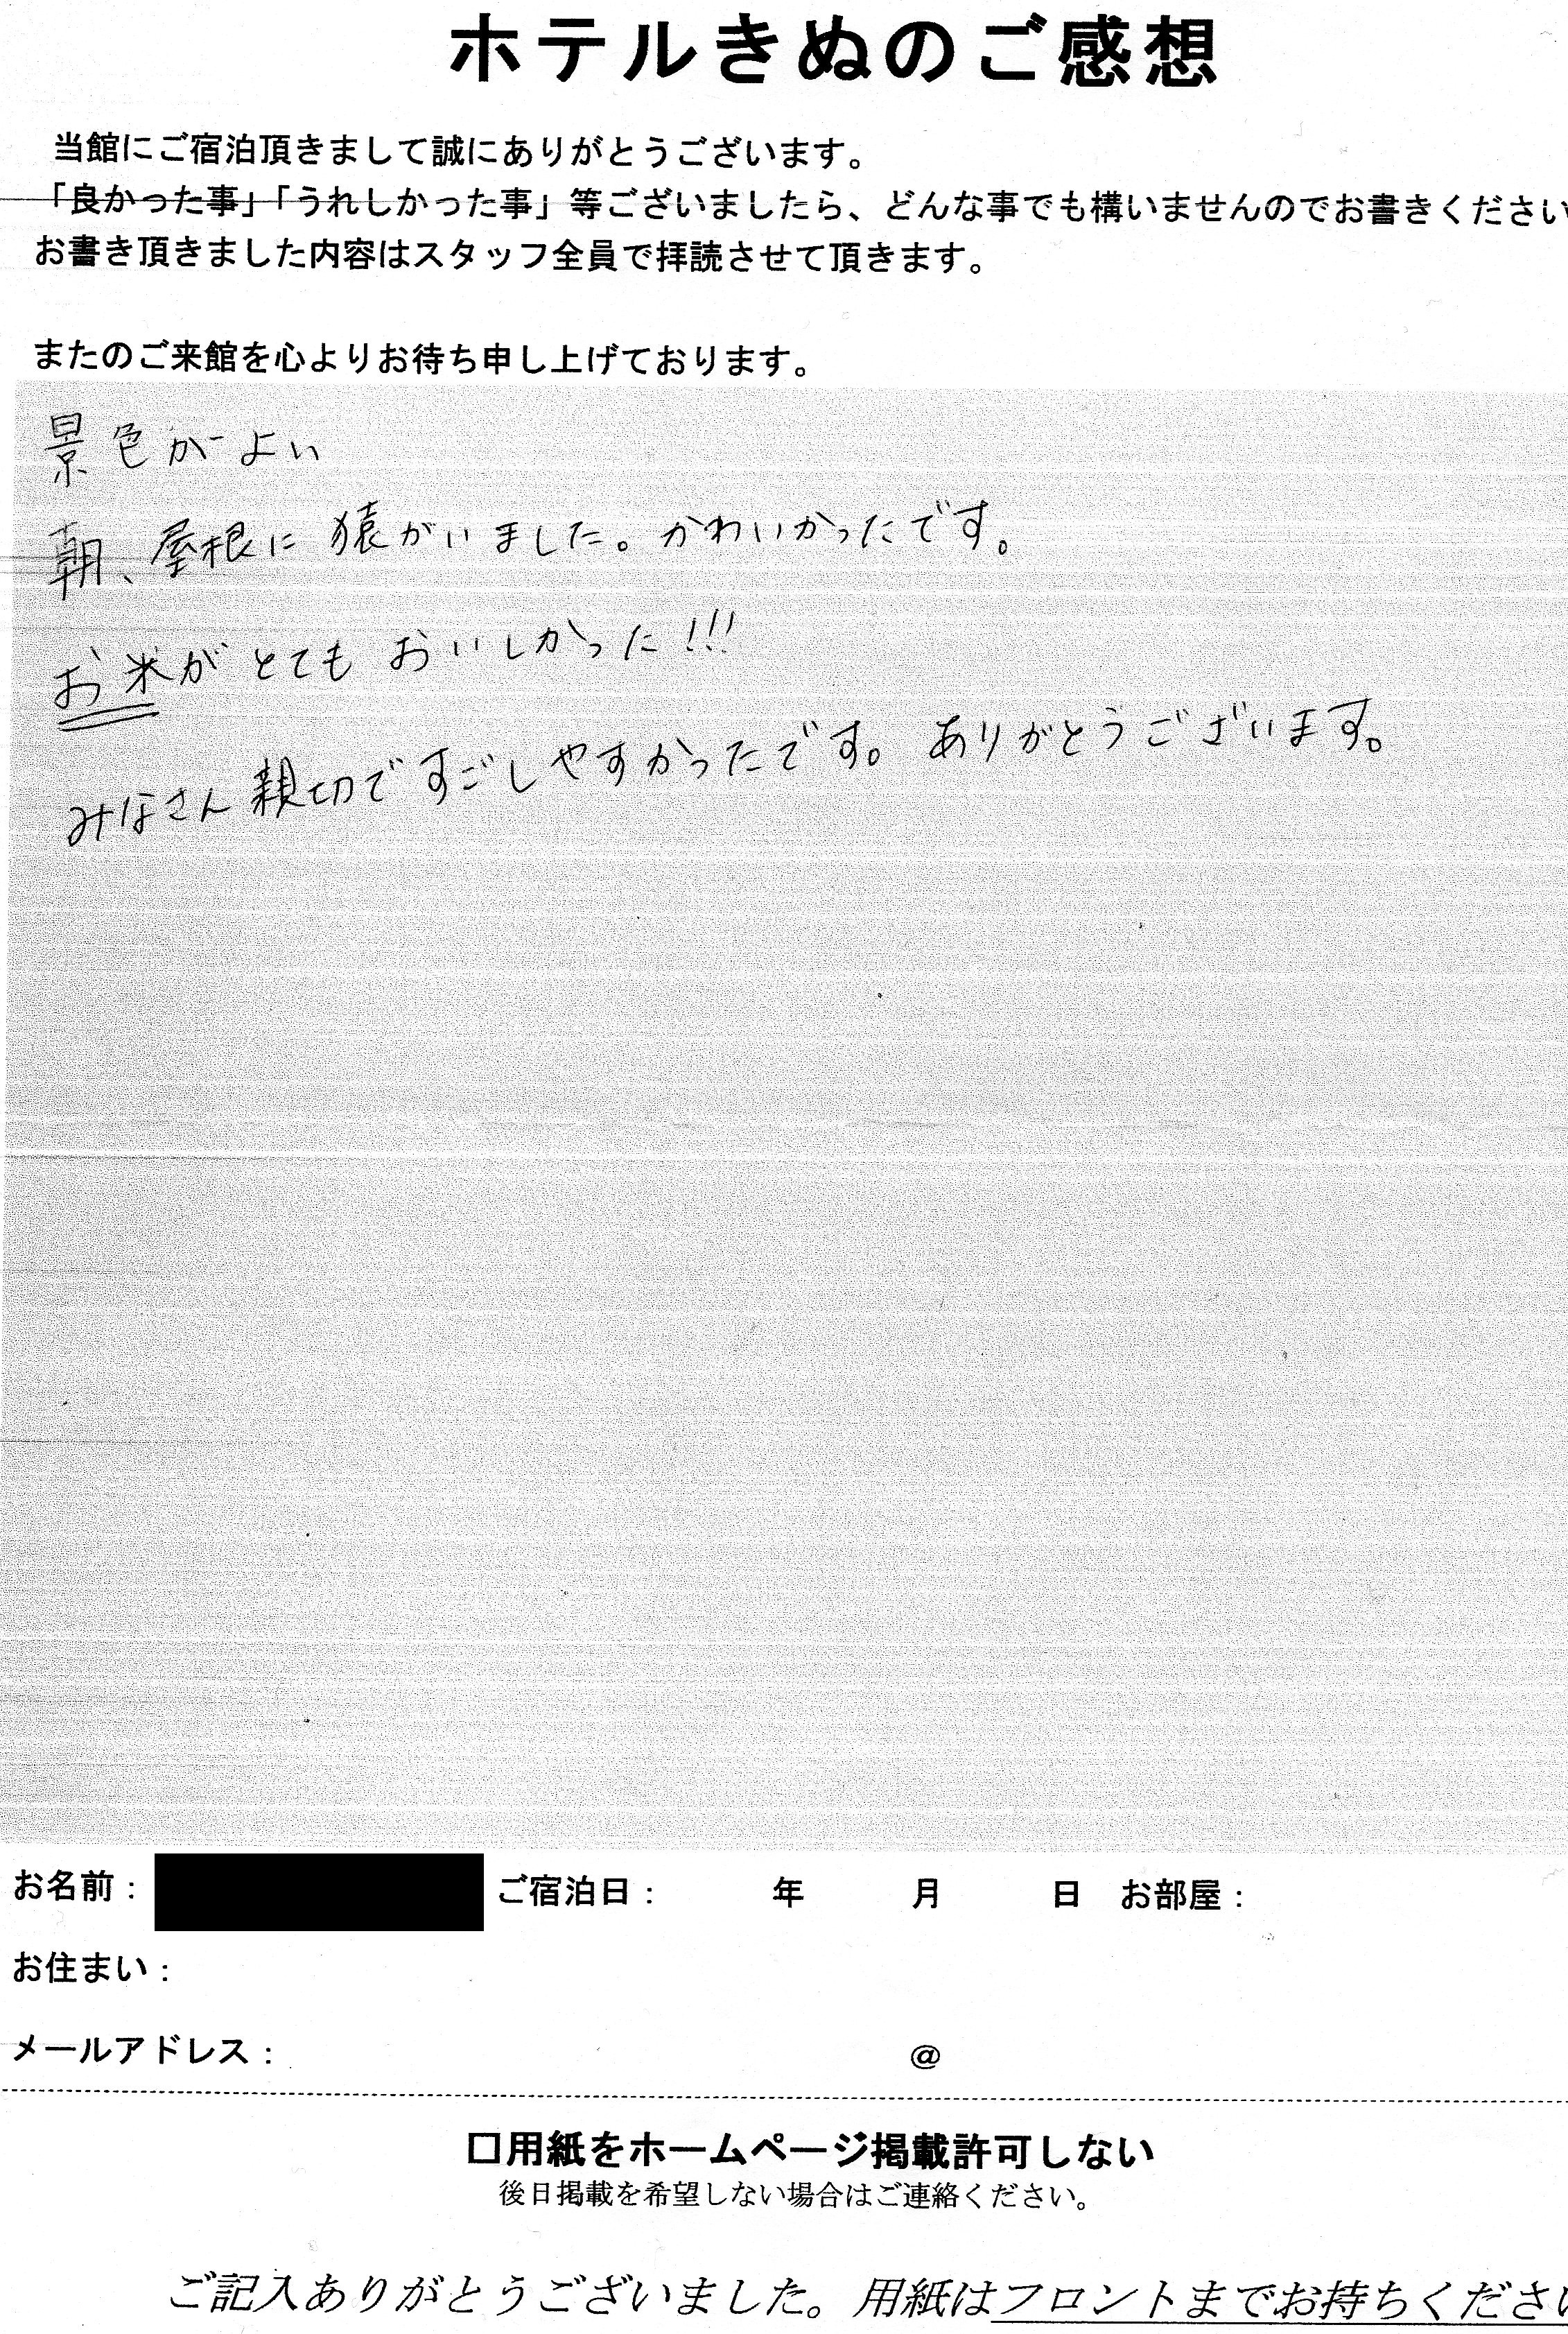 ホテルきぬのご感想
当館にご宿泊頂きまして誠にありがとうございます。
「良かった事」「うれしかった事」等ございましたら、どんな事でも構いませんのでお書きください
お書き頂きました内容はスタッフ全員で拝読させて頂きます。
またのご来館を心よりお待ち申し上げております。
景色がよい
朝、屋根に猿がいました。かわいかったです。
お米がとてもおいしかった!!!
みなさん親切ですごしやすかったです。ありがとうございます。
お名前： ご宿泊日： 年 月 日 お部屋：
お住まい：
メールアドレス： @
□用紙をホームページ掲載許可しない
後日掲載を希望しない場合はご連絡ください。
ご記入ありがとうございました。用紙はフロントまでお持ちくださ